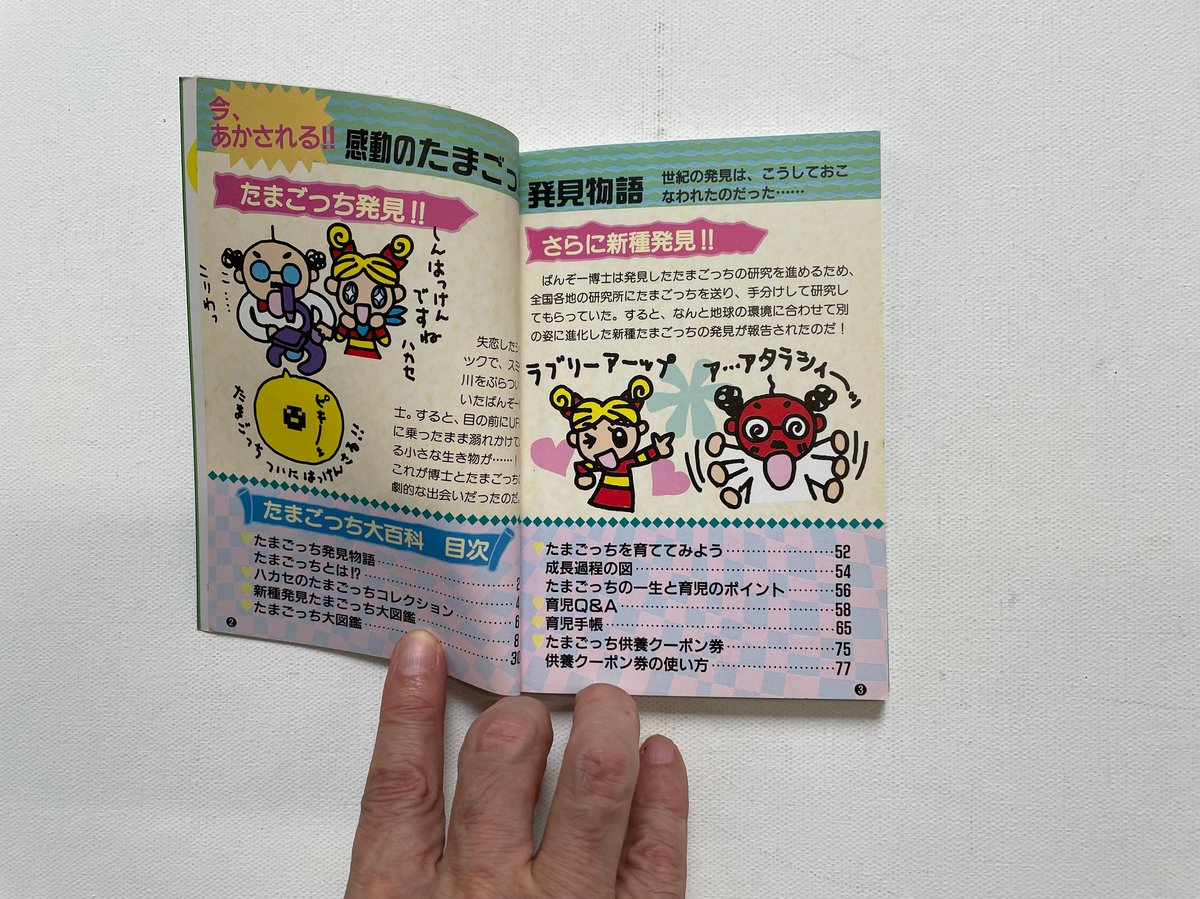 今、
あかされる!!
感動のたまごっ
たまごっち発見!!
しんはっけん
ですね
ハカセ
こ……
こりわっ
ピキーッ
たまごっち
ついにはっけんさる
失恋した
ックで、スミ
川をぶらつい
いたばんぞー
士。すると、目の前にUF
に乗ったまま溺れかけて
る小さな生き物が……!
これが博士とたまごっち
劇的な出会いだったのだ。
たまごっち大百科 目次
たまごっち発見物語 2
たまごっちとは!? 4
ハカセのたまごっちコレクション 6
新種発見たまごっち大図鑑 8
たまごっち大図鑑 30
2
発見物語
世紀の発見は、こうしておこ
なわれたのだった……
さらに新種発見!!
ばんぞー博士は発見したたまごっちの研究を進めるため、
全国各地の研究所にたまごっちを送り、手分けして研究し
てもらっていた。すると、なんと地球の環境に合わせて別
の姿に進化した新種たまごっちの発見が報告されたのだ!
ラブリーアーップ
ア…アタラシィーッ
たまごっちを育ててみよう 52
成長過程の図 54
たまごっちの一生と育児のポイント 56
育児Q&A 58
育児手帳 65
たまごっち供養クーポン券 75
供養クーポン券の使い方 77
3